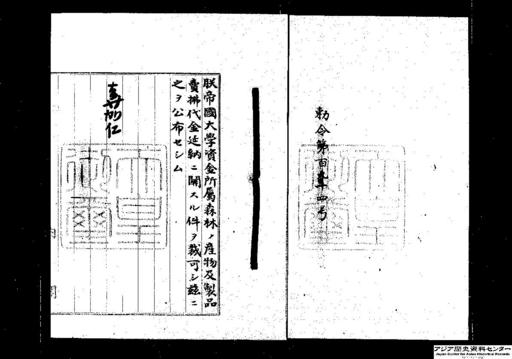 勅令第百五十四号
朕帝國大學資金所屬森林ノ産物及製品
賣拂代金延納ニ關スル件ヲ裁可シ茲ニ
之ヲ公布セシム
嘉仁
天皇
御璽
アジア歴史資料センター
Japan Center for Asian Historical Records